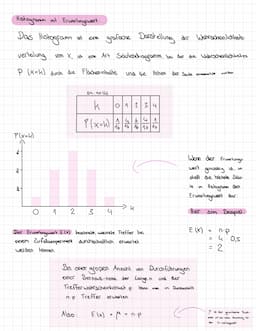 Histogramm mit Erwartungswert
Das Histogramm ist eine grafische Darstellung der Wahrscheinlichkeits-
verteilung von X, ist eine Art Säulendiagramm, bei der die Wahrscheinlichkeiten
P (X=k) durch die Flächeninhalte und die Höhen der Säule
n=4 p=0,5
k 0 1 2 3 4
P(X=k) 1/16 4/16 6/16 4/16 1/16
P(X=k)
0 1 2 3 4 k
Wenn der Erwartungs-
wert ganzzahlig ist,
die höchste Säule
im Histogramm der
Erwartungswert
Hier am Beispiel:
E(X) = n·p
= 4 · 0,5
= 2
Der Erwartungswert E(X) beschreibt, welche Treffer bei
einem Zufallsexperiment durchschnittlich erwartet
werden können.
Bei einer großen Anzahl von Durchführungen
einer Bernoulli-Kette der Länge n und der
Trefferwahrscheinlichkeit p kann man im Durchschnitt
n·p Treffer erwarten
Also: E(X) = μ = n·p